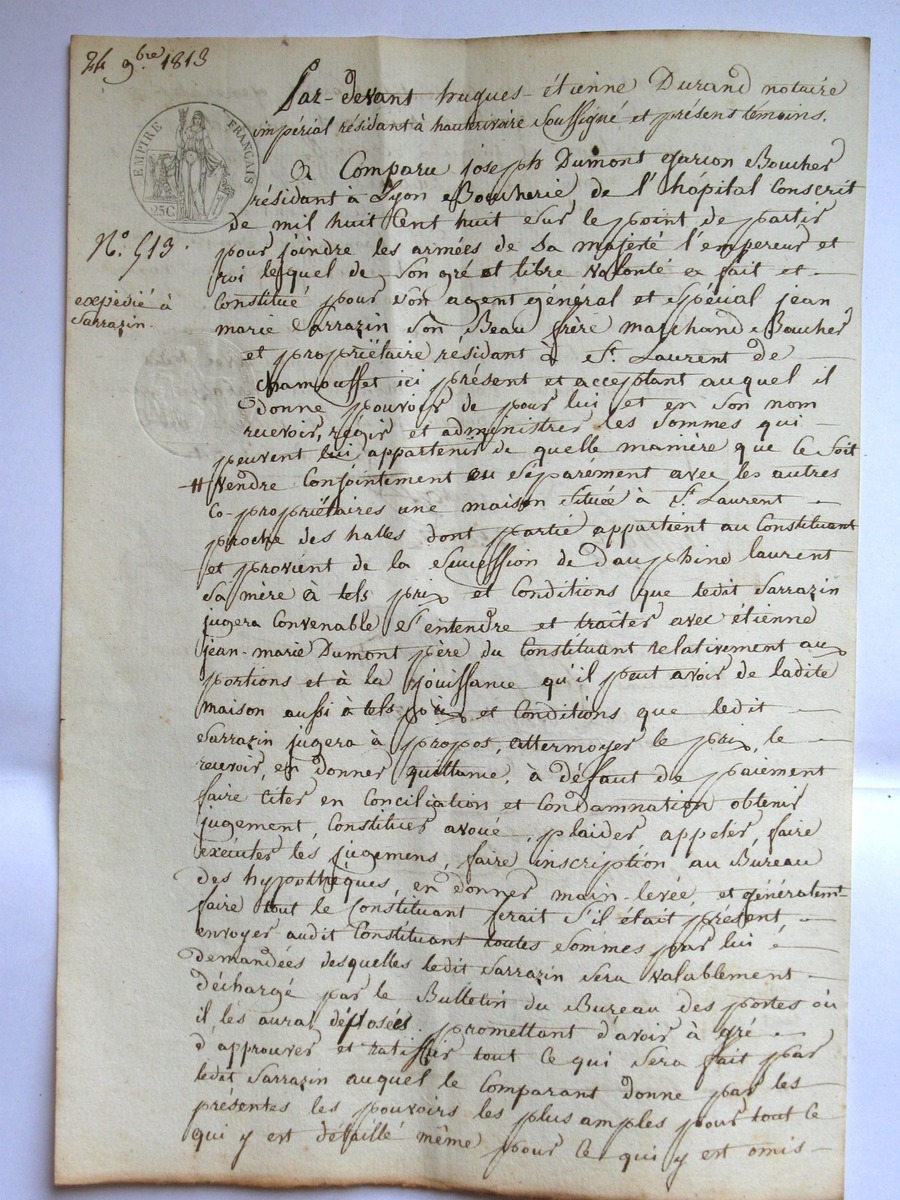 24 9bre 1813
Par-devant hugues-étienne Durand notaire
impérial résidant à hauterivoire soussigné et présens témoins.
EMPIRE FRANÇAIS
25C
A Comparu joseph Dumont garçon Boucher
résidant à Lyon Boucherie de l'hôpital Conscrit
de mil huit Cent huit sur le point de partir
N° 513.
pour joindre les armées de Sa majesté l'empereur et
roi lequel de son gré et libre volonté a fait et
expédié à
Sarrazin.
Constitué pour son agent général et spécial jean
marie Sarrazin son Beau frère marchand Boucher
et propriétaire résidant à St. Laurent de
chamousset ici présent et acceptant auquel il
donne pouvoir de pour lui et en son nom
recevoir, régir et administrer les sommes qui
peuvent lui appartenir de quelle manière que ce soit
# vendre Conjointement ou séparement avec les autres
Co-propriétaires une maison située à St. Laurent
proche des halles dont partie appartient au Constituant
et provient de la succession de dauphine laurent
sa mère à tels prix et Conditions que ledit Sarrazin
jugera Convenable s'entendre et traiter avec étienne
jean-marie Dumont père du Constituant relativement aux
portions et à la jouissance qu'il peut avoir de ladite
maison aussi à tels prix et Conditions que ledit
Sarrazin jugera à propos, attermoyer le prix, le
recevoir, en donner quittance, à défaut de paiement
faire citer en Conciliation et Condamnation obtenir
jugement, Constituer avoué, plaider appeler, faire
exécuter les jugemens, faire inscription au Bureau
des hypothèques, en donner main-levée, et généralemt
faire tout le Constituant ferait s'il était présent
envoyer audit Constituant toutes sommes par lui
demandées desquelles ledit Sarrazin sera valablement
déchargé par le Bulletin du Bureau des postes où
il les aura déposées. promettant d'avoir à gré
d'approuver et ratifier tout ce qui sera fait par
ledit Sarrazin auquel le Comparant donne par les
présentes les pouvoirs les plus amples pour tout ce
qui y est détaillé même pour ce qui y est omis